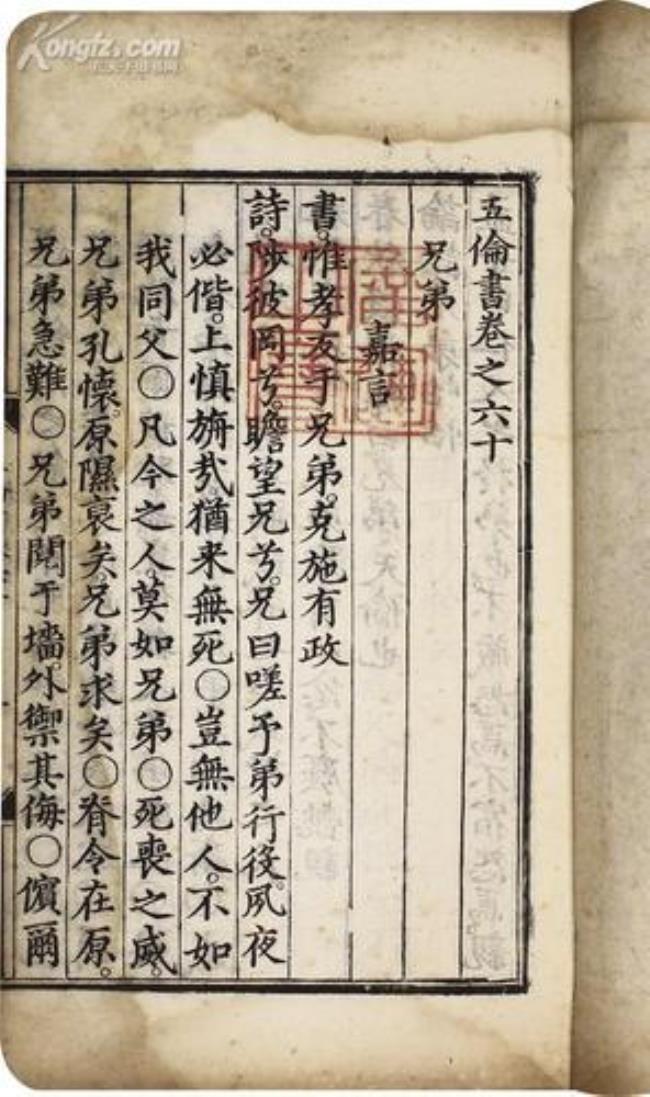 Kongfz.com
五倫書卷之六十
兄弟
嘉言
書。惟孝友于兄弟。克施有政
詩。陟彼岡兮。瞻望兄兮。兄曰嗟予弟行役。夙夜
必偕。上慎旃㢤。猶来無死○豈無他人。不如
我同父○凡今之人。莫如兄弟○死喪之威。
兄弟孔懷。原隰裒矣。兄弟求矣○脊令在原。
兄弟急難○兄弟鬩于墻。外禦其侮○儐爾